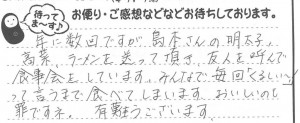 待ってま〜す♪
お便り・ご感想などなどお待ちしております。
年に数回ですが島本さんの明太子、
高菜、ラーメンを送って頂き、友人を呼んで
食事会をしています。みんなで毎回「くるしい〜」
って言うまで食べてしまいます。おいしいのも
罪ですネ。 有難うございます。